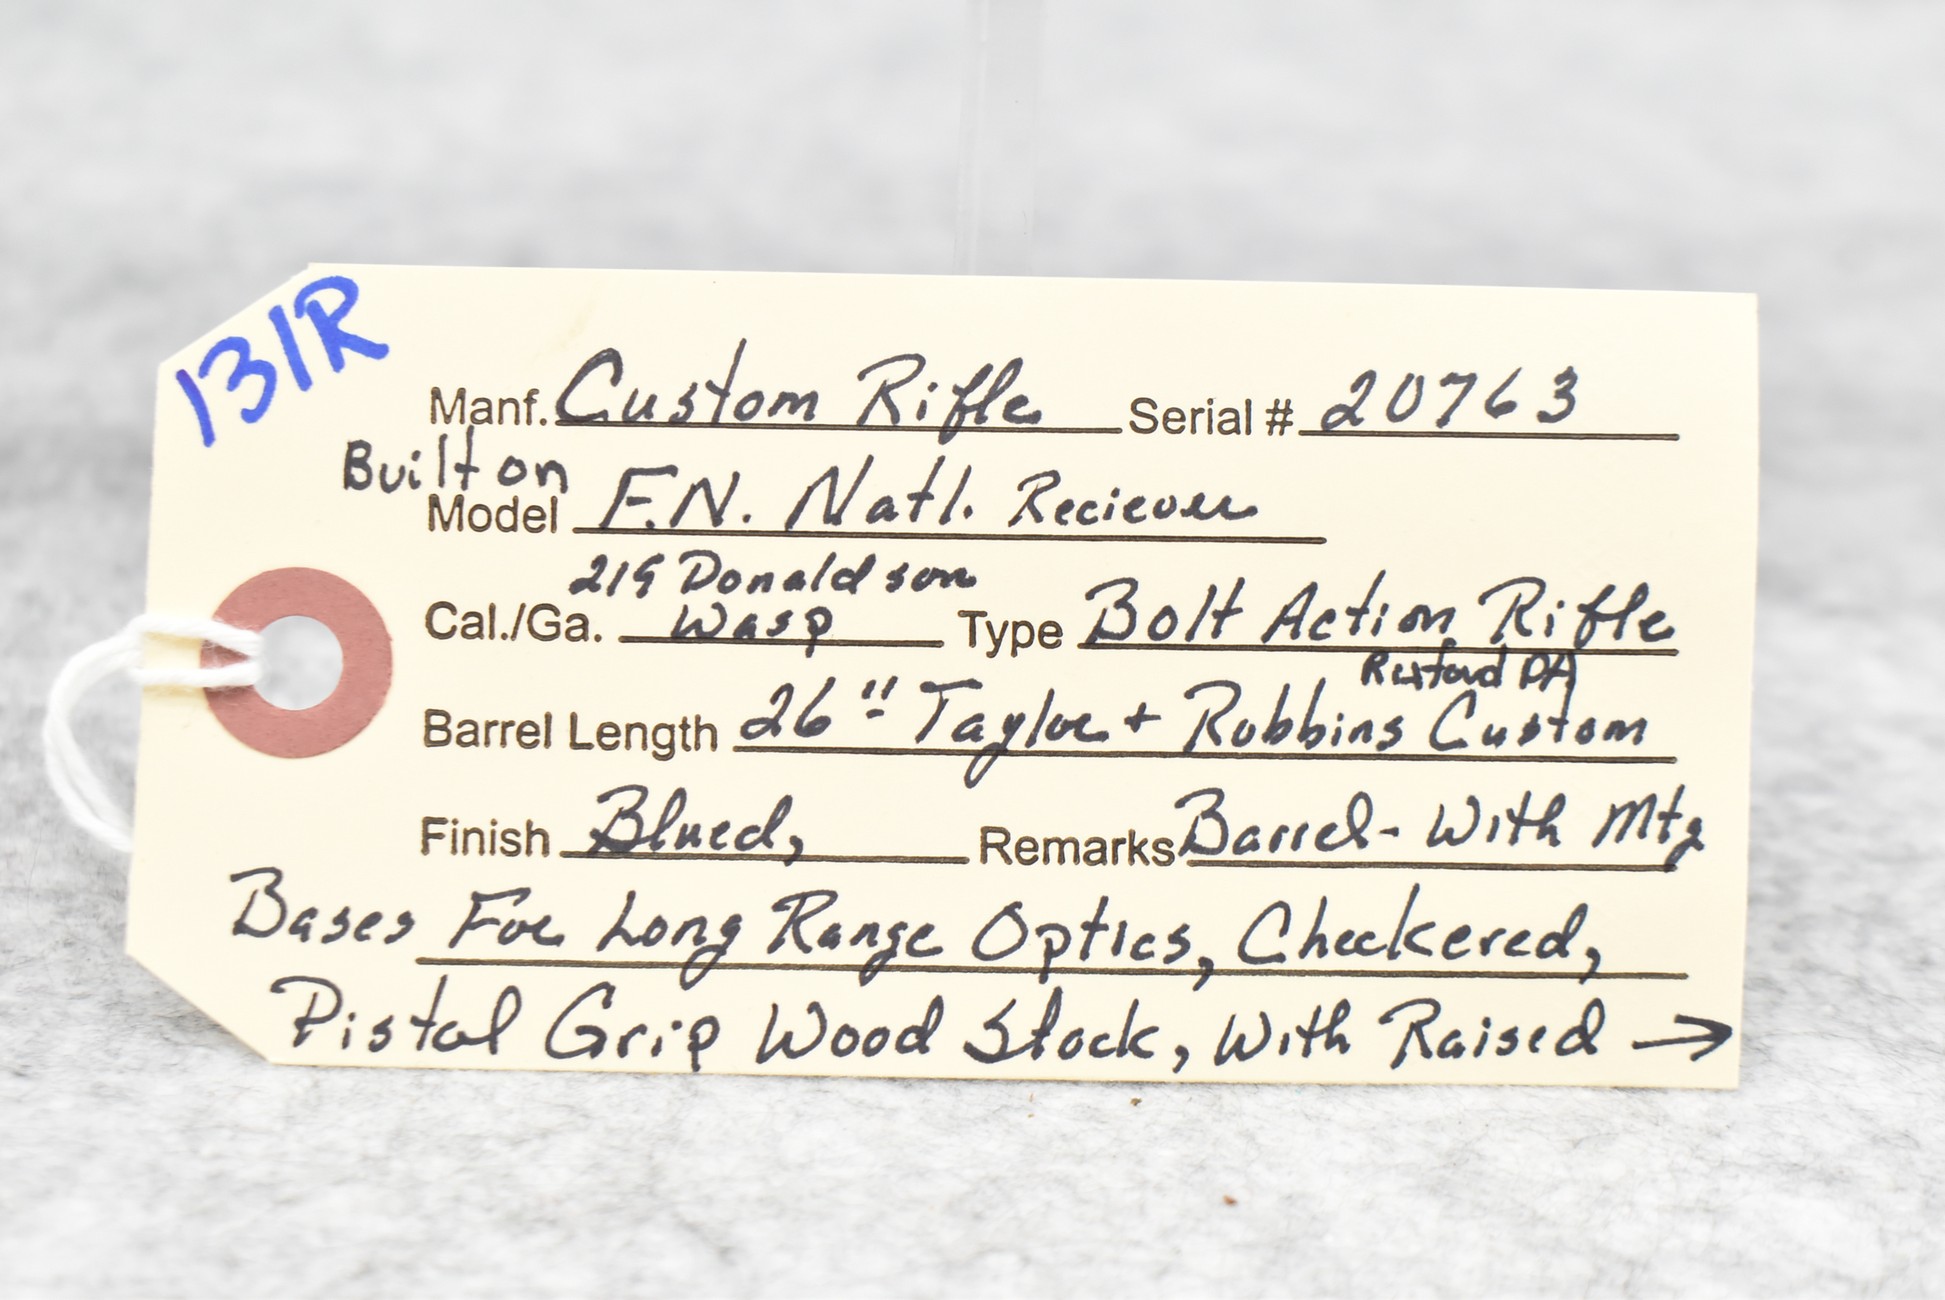 131R
Manf. Custom Rifle Serial # 20763
Built on
Model F.N. Natl. Reciever
219 Donaldson
Cal./Ga. Wasp Type Bolt Action Rifle
Rixford PA
Barrel Length 26" Taylor + Robbins Custom
Finish Blued, Remarks Barrel - With Mtg
Bases For Long Range Optics, Checkered,
Pistol Grip Wood Stock, With Raised →